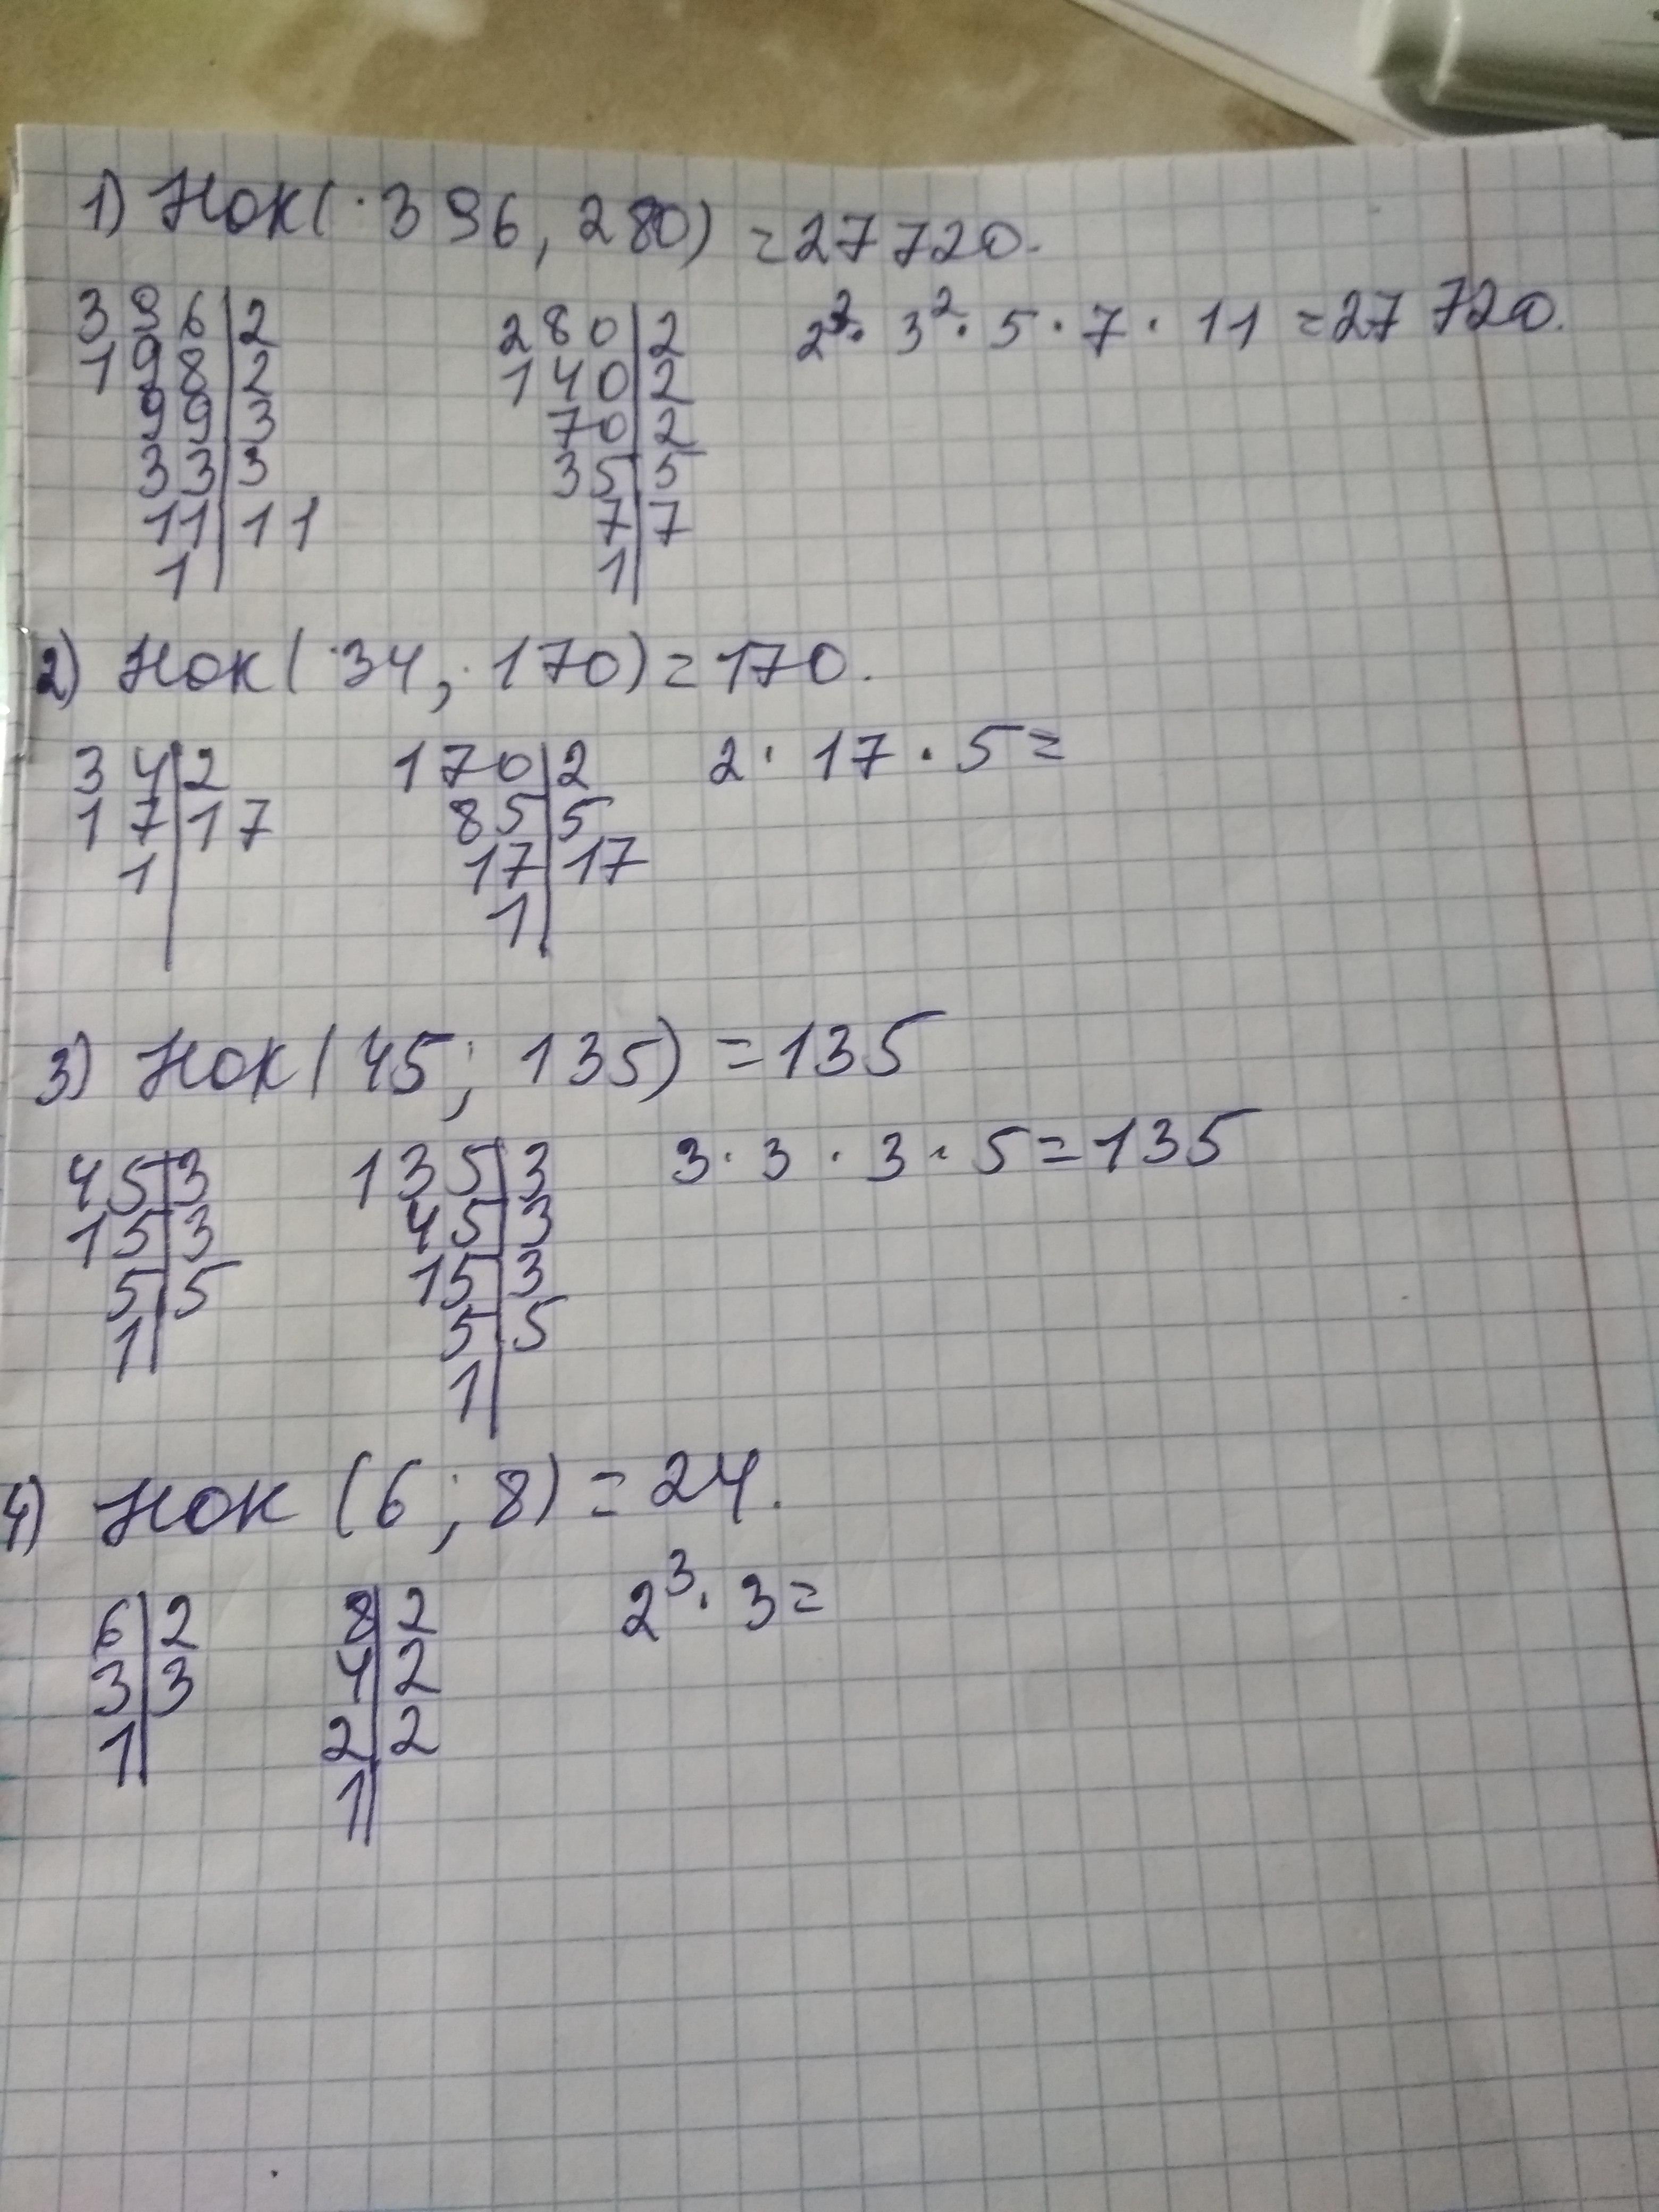 1) НОК(·396, 280) = 27720.
396|2 280|2 2³· 3²· 5 · 7 · 11 = 27 720.
198|2 140|2
99|3 70|2
33|3 35|5
11|11 7|7
1| 1|
2) НОК(·34, ·170) = 170.
34|2 170|2 2 · 17 · 5 =
17|17 85|5
1| 17|17
1|
3) НОК(45; 135) = 135
45|3 135|3 3 · 3 · 3 · 5 = 135
15|3 45|3
5|5 15|3
1| 5|5
1|
4) НОК (6; 8) = 24.
6|2 8|2 2³· 3 =
3|3 4|2
1| 2|2
1|